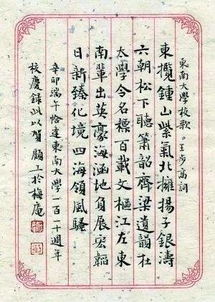 東南大學校歌 王步高詞
東攬鍾山紫氣北擁揚子銀濤
六朝松下聽簫韶齊梁遺韻在
太學令名標百載文樞江左東
南輩出英豪海涵地負展宏韜
日新臻化境四海領風騷
辛卯端午恰逢東南大學一百一十週年
校慶錄此以賀 顧工於梅庵